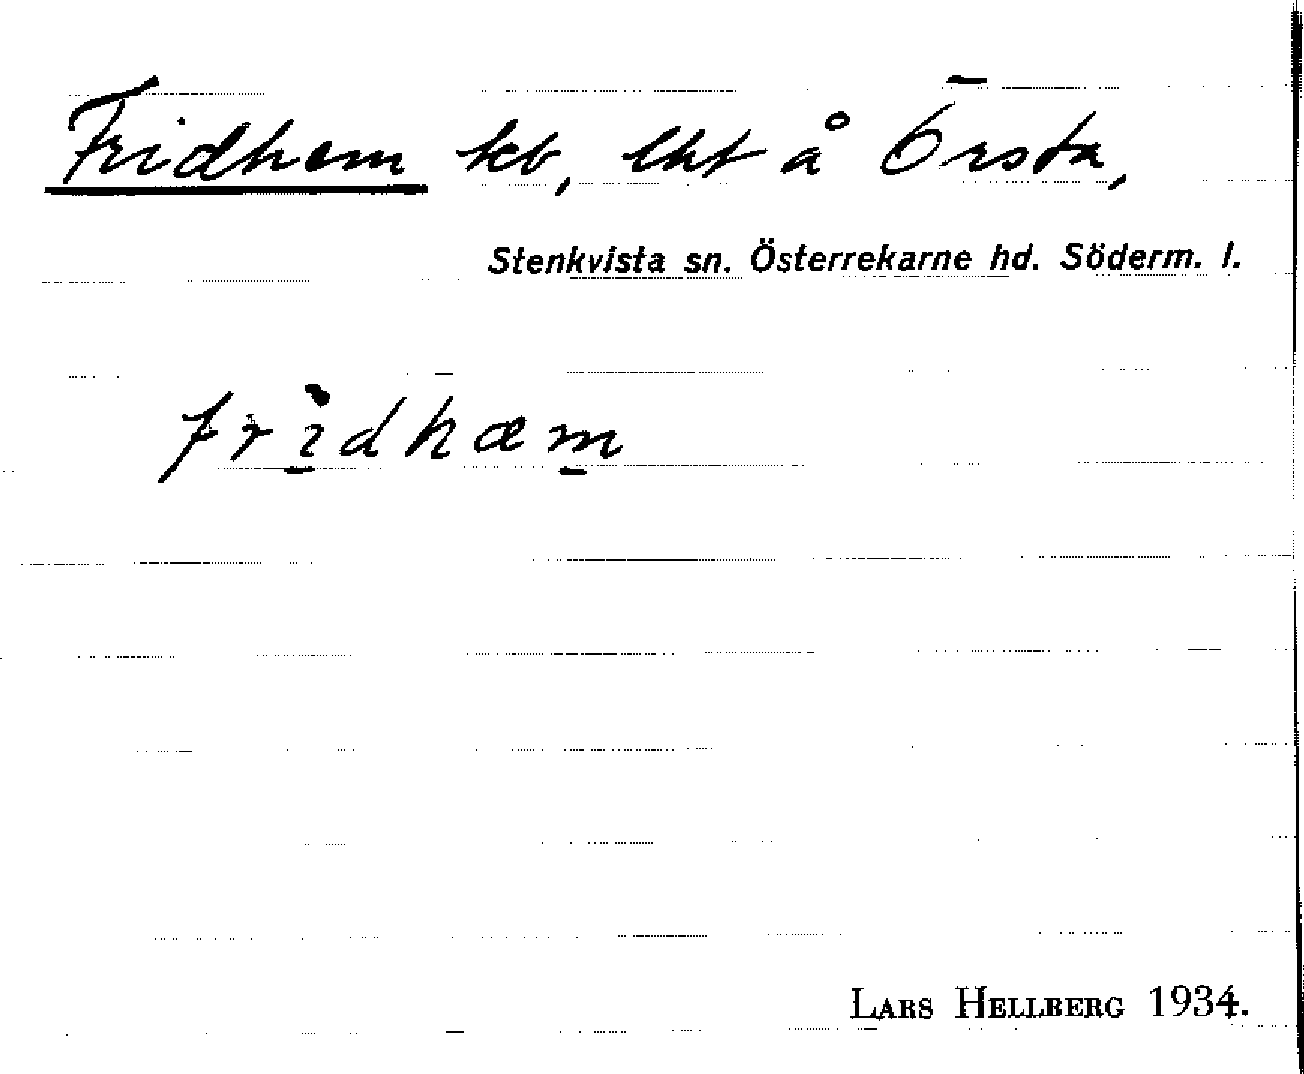 Fridhem lht å Örsta,
Stenkvista sn. Österrekarne hd. Söderm. l.
frì̱dhæm̱
LARS HELLBERG 1934.